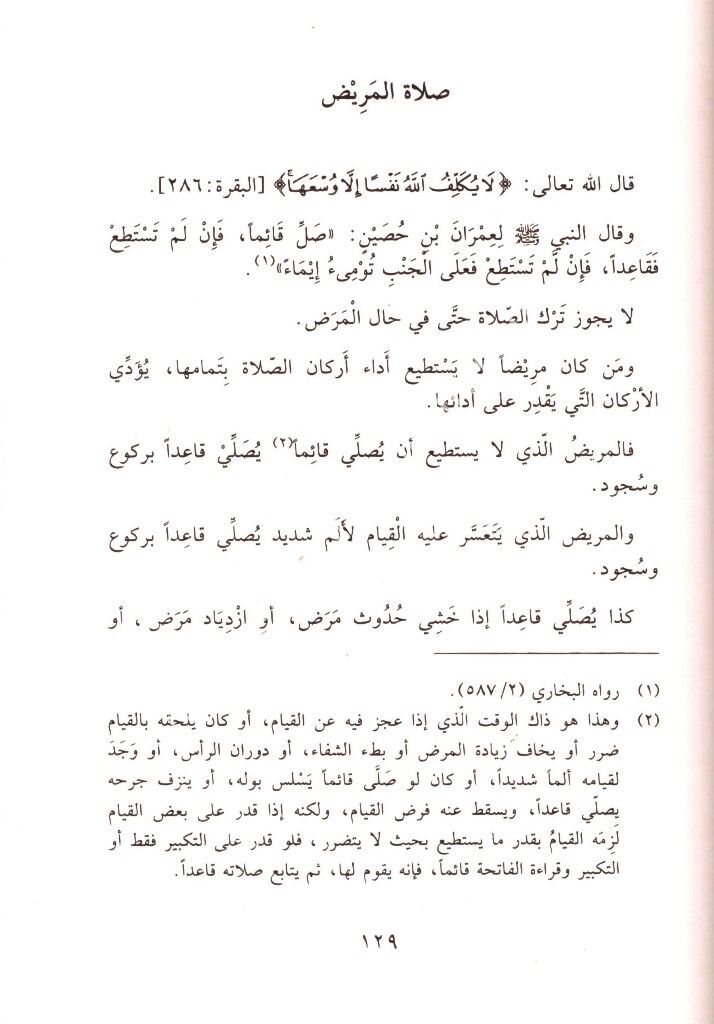 صلاة المَرِيْض
قال الله تعالى: ﴿لَا يُكَلِّفُ ٱللَّهُ نَفْسًا إِلَّا وُسْعَهَا﴾ [البقرة: ٢٨٦].
وقال النبي ﷺ لِعِمْرَانَ بْنِ حُصَيْنٍ: «صَلِّ قَائِماً، فَإِنْ لَمْ تَسْتَطِعْ
فَقَاعِداً، فَإِنْ لَّمْ تَسْتَطِعْ فَعَلَى الْجَنْبِ تُوْمِىءُ إِيْمَاءً»(١).
لا يجوز تَرْك الصّلاة حتَّى في حال الْمَرَض.
ومَن كان مرِيْضاً لا يَسْتطيع أداء أَركان الصّلاة بِتَمامها، يُؤَدِّي
الأرْكان التَّي يَقْدِر على أدائها.
فالمريضُ الّذي لا يستطيع أن يُصلِّي قائِماً(٢) يُصَلِّيْ قاعِداً بركوع
وسُجود.
والمريض الّذي يَتَعَسَّر عليه الْقِيام لأَلَم شديد يُصلِّي قاعِداً بركوع
وسُجود.
كذا يُصَلِّي قاعِداً إذا خَشِي حُدُوث مَرَض، أوِ ازْدِيَاد مَرَض، أو
(١) رواه البخاري (٢/ ٥٨٧).
(٢) وهذا هو ذاك الوقت الّذي إذا عجز فيه عن القيام، أو كان يلحقه بالقيام
ضرر أو يخاف زيادة المرض أو بطء الشفاء، أو دوران الرأس، أو وَجَدَ
لقيامه ألماً شديداً، أو كان لو صَلَّى قائماً يَسْلس بوله، أو ينزف جرحه
يصلّي قاعداً، ويسقط عنه فرض القيام، ولكنه إذا قدر على بعض القيام
لَزِمَه القيامُ بقدر ما يستطيع بحيث لا يتضرر، فلو قدر على التكبير فقط أو
التكبير وقراءة الفاتحة قائماً، فإنه يقوم لها، ثم يتابع صلاته قاعداً.
١٢٩